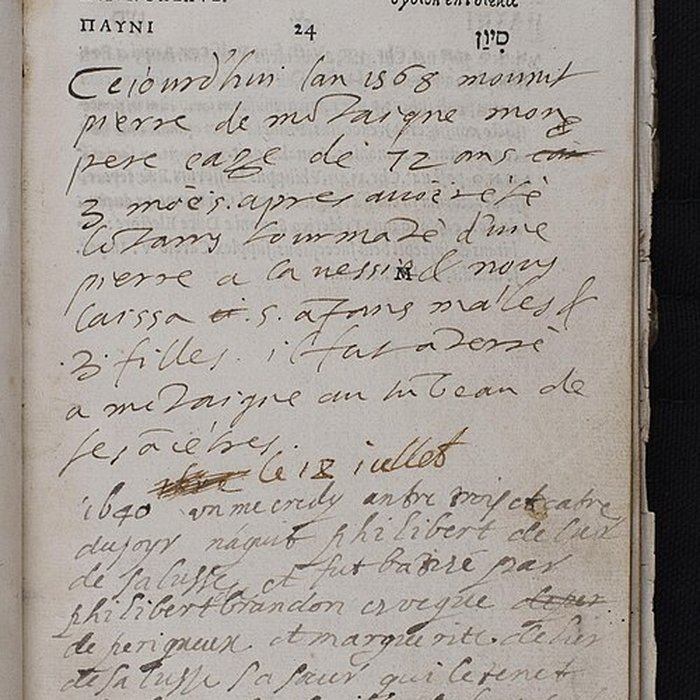 ΠΑΥΝΙ 24 סִיוָן
Ceiourdhui lan 1568 mourut
pierre de mõtaigne mon
pere eage de 72 ans
3 moës apres auoër esté
lõtams tourmãtè d'une
pierre a la vessie & nous
laissa 5. ãfans males &
3 filles. il fut ãterrè
a mõtaigne au tũbeau de
ses ãcetres.
le 18 iullet
1640 vn mecredy antre trois et catre
du jour náquit philibert de lur
de salusse et fut batizé par
philibert brandon eveque
de perigueux et marguerite de lur
de salusse sa seur qui le tenet